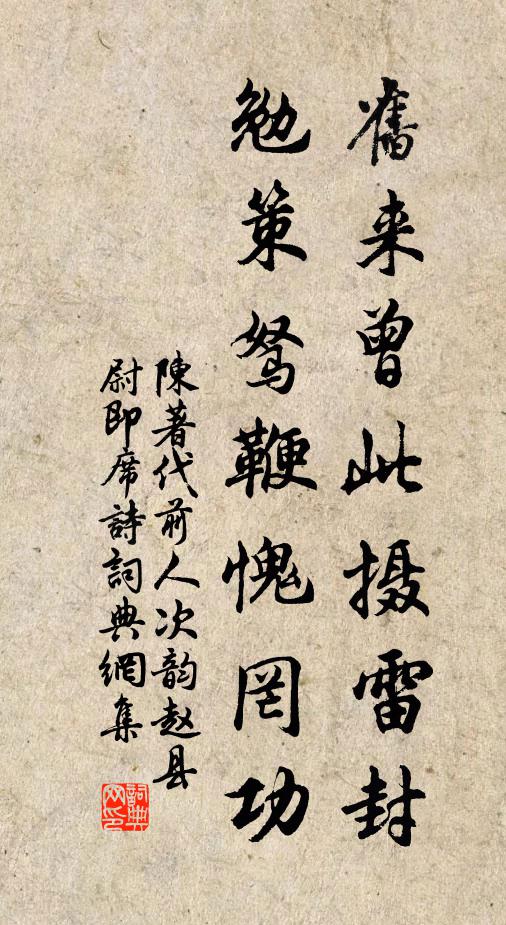 舊来曾此摄雷封
勉策駑鞭愧罔功
陳著代前人次韵赵县
尉即席詩詞典網集
詞典
网印